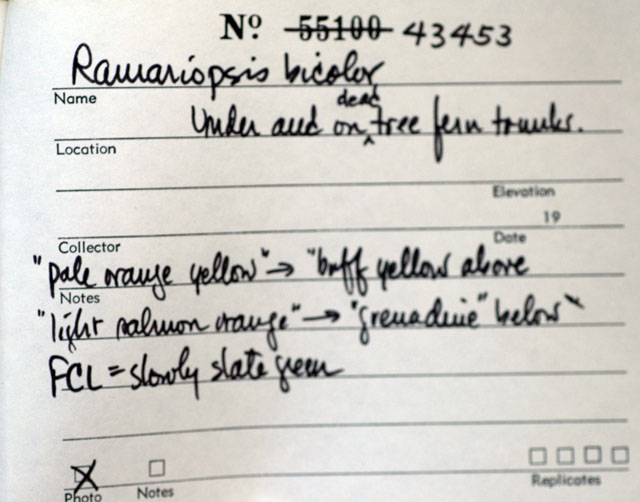 Nº 55100 43453
Ramariopsis bicolor
Name
Under and on dead tree fern trunks.
Location
Elevation
19
Collector Date
"pale orange yellow" → "buff yellow above
Notes
"light salmon orange" → "grenadine" below"
FCL = slowly slate green
Photo Notes Replicates